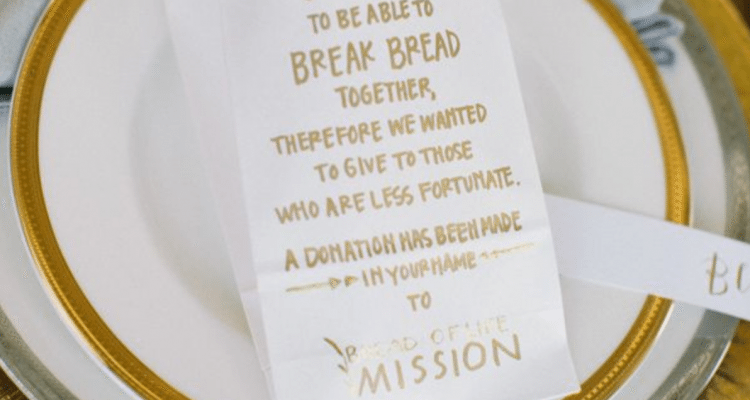 TO BE ABLE TO
BREAK BREAD
TOGETHER,
THEREFORE WE WANTED
TO GIVE TO THOSE
WHO ARE LESS FORTUNATE.
A DONATION HAS BEEN MADE
IN YOUR NAME
TO
BREAD OF LIFE
MISSION